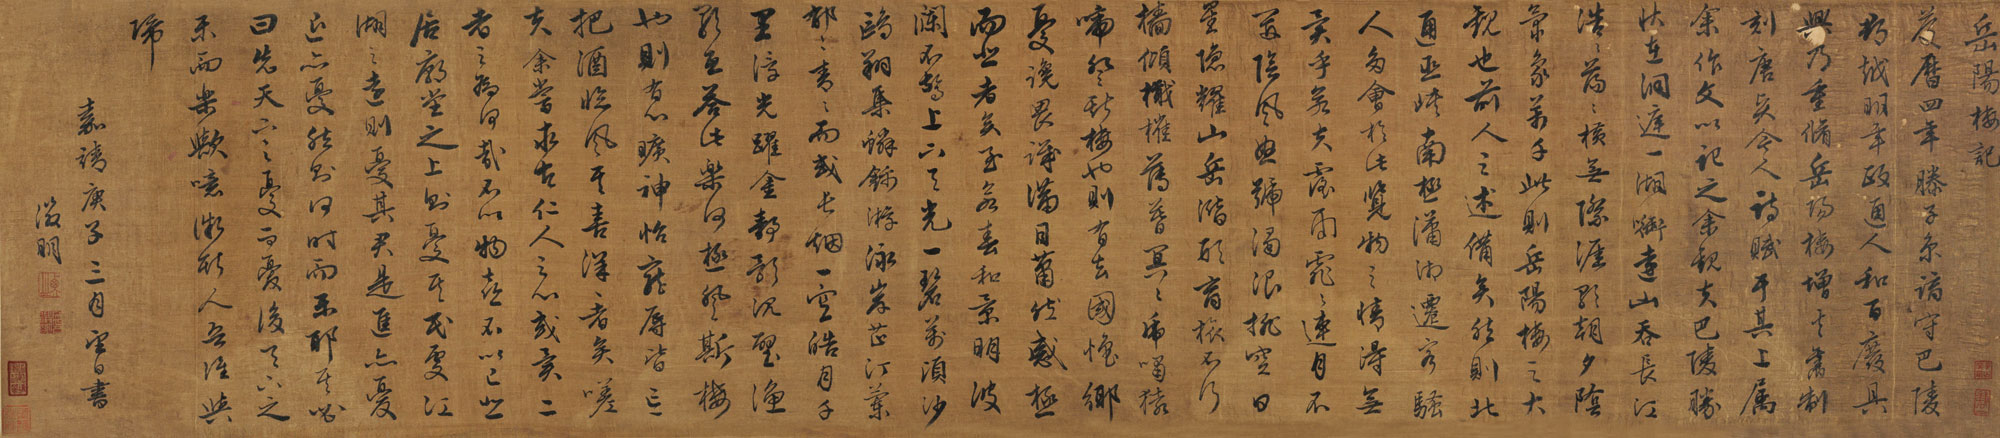 岳陽樓記
慶曆四年滕子京謫守巴陵
郡越明年政通人和百廢具
興乃重脩岳陽樓增其舊制
刻唐賢今人詩賦于其上屬
余作文以記之余觀夫巴陵勝
狀在洞庭一湖啣遠山吞長江
浩〻蕩〻橫無際涯朝夕陰
氣象萬千此則岳陽樓之大
觀也前人之述備矣然則北
通巫峽南極瀟湘遷客騷
人多會於此覽物之情得無
異乎若夫霪雨霏〻連月不
開陰風怒號濁浪排空日
星隱耀山岳潛形商旅不行
檣傾檝摧薄暮冥〻虎嘯猿
啼登斯樓也則有去國懷鄉
憂讒畏譏滿目蕭然感極
而悲者矣至若春和景明波
瀾不驚上下天光一碧萬頃沙
鷗翔集鱗錦游泳岸芷汀蘭
郁〻青〻而或長烟一空皓月千
里浮光躍金靜影沉璧漁
歌互答此樂何極登斯樓
也則有心曠神怡寵辱皆忘
把酒臨風其喜洋者矣嗟
夫余嘗求古仁人之心或異二
者之為何哉不以物喜不以己悲
居廟堂之上則憂其民處江
湖之遠則憂其君是進亦憂
退亦憂然則何時而樂耶其必
曰先天下之憂而憂後天下之
樂而樂歟噫微斯人吾誰與
歸
嘉靖庚子三月望日書
徵明